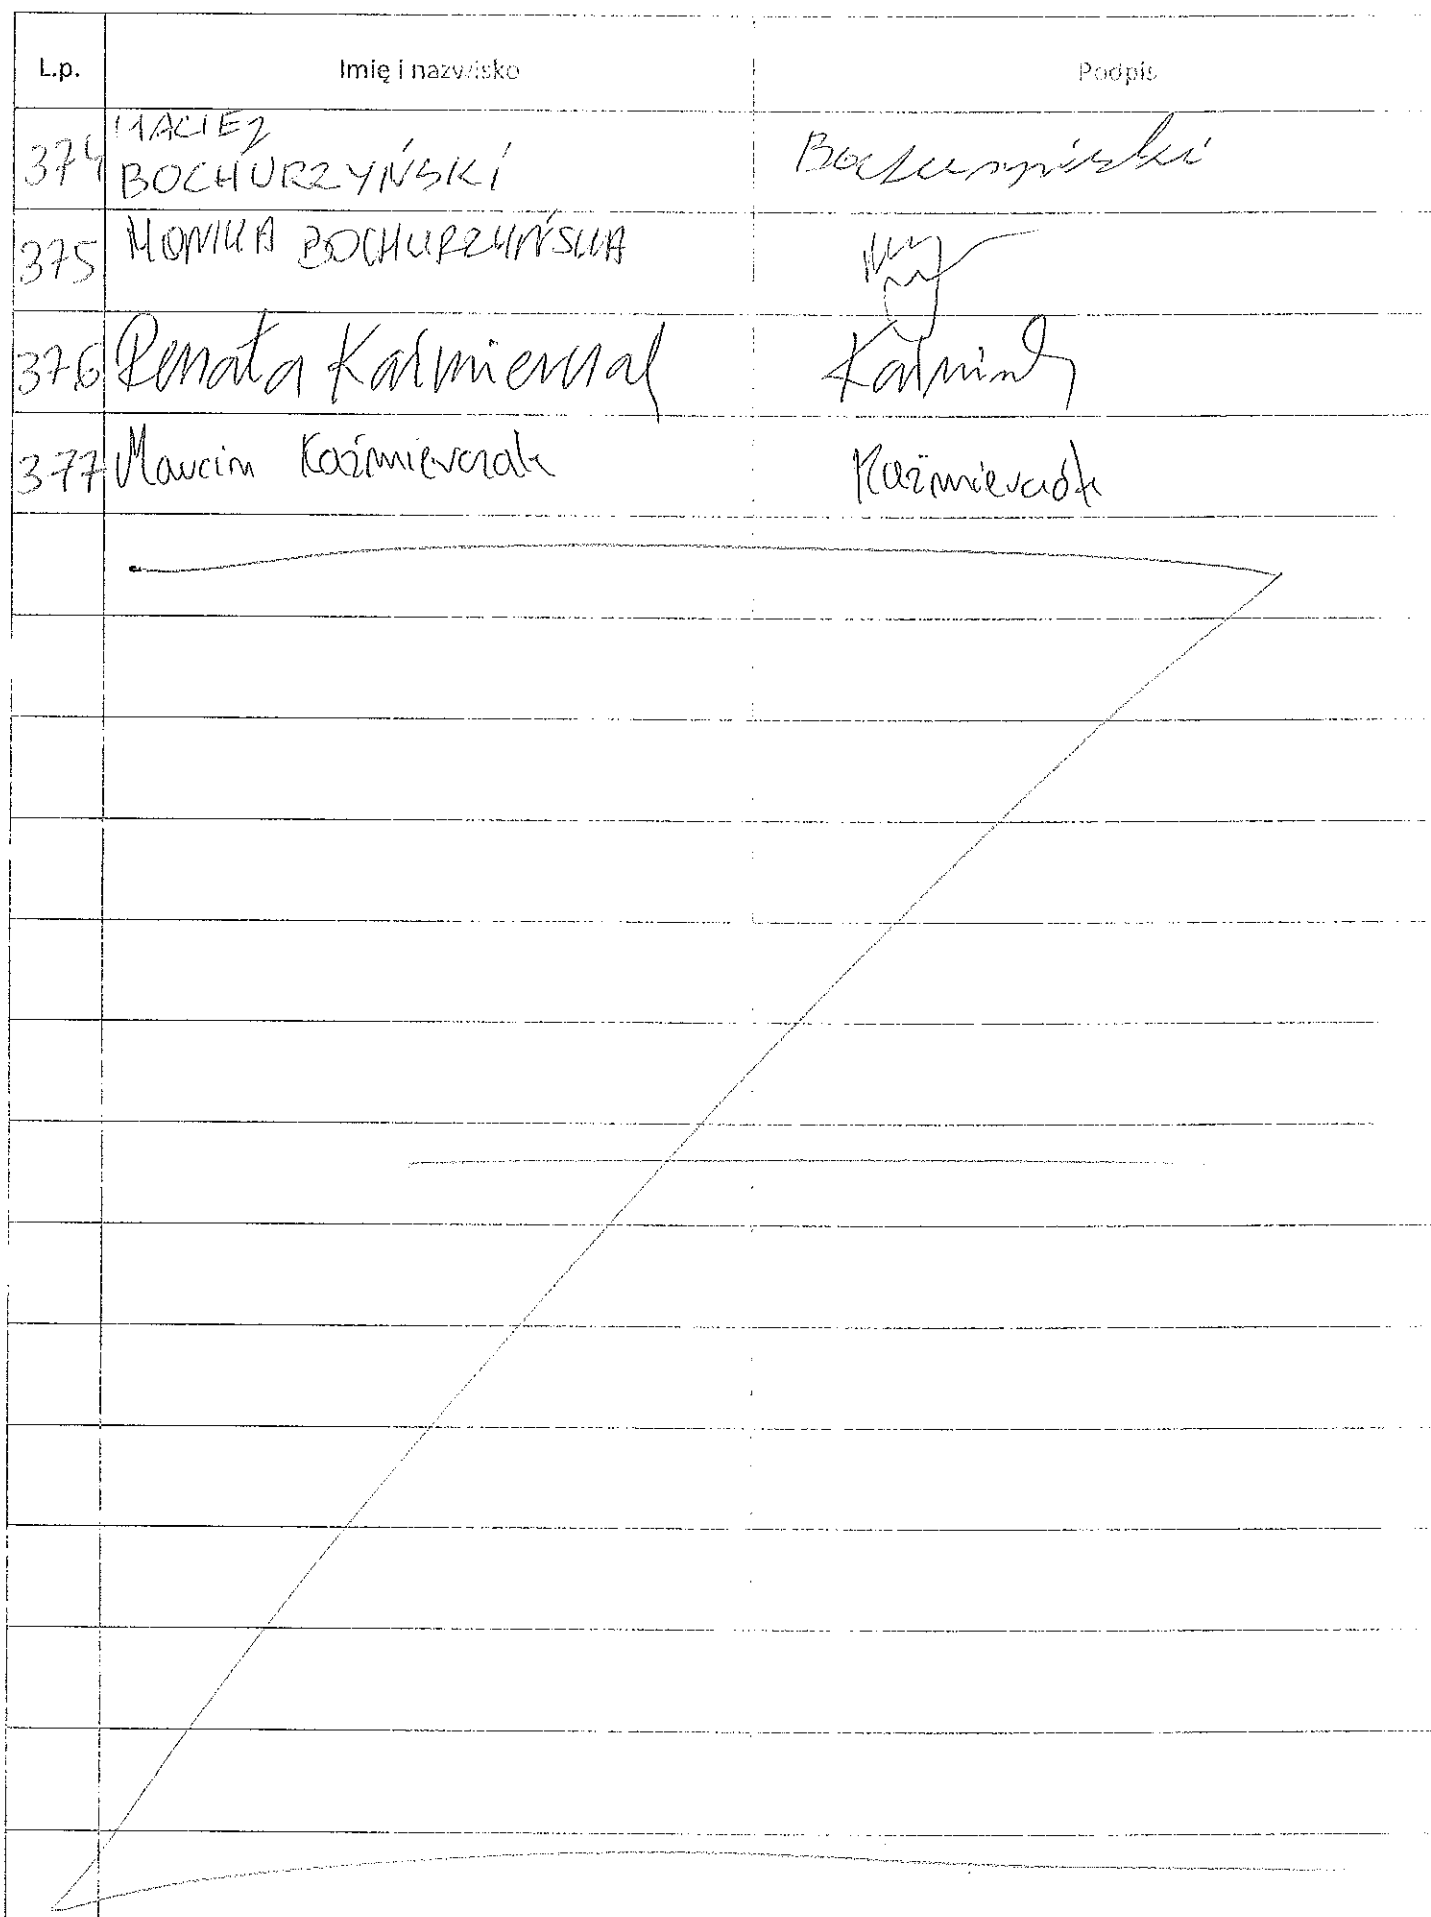 L.p. Imię i nazwisko Podpis
MACIEJ
374 BOCHURZYŃSKI Bochurzyński
375 MONIKA BOCHURZYŃSKA
376 Renata Kaźmierczak
377 Marcin Kaźmierczak Kaźmierczak